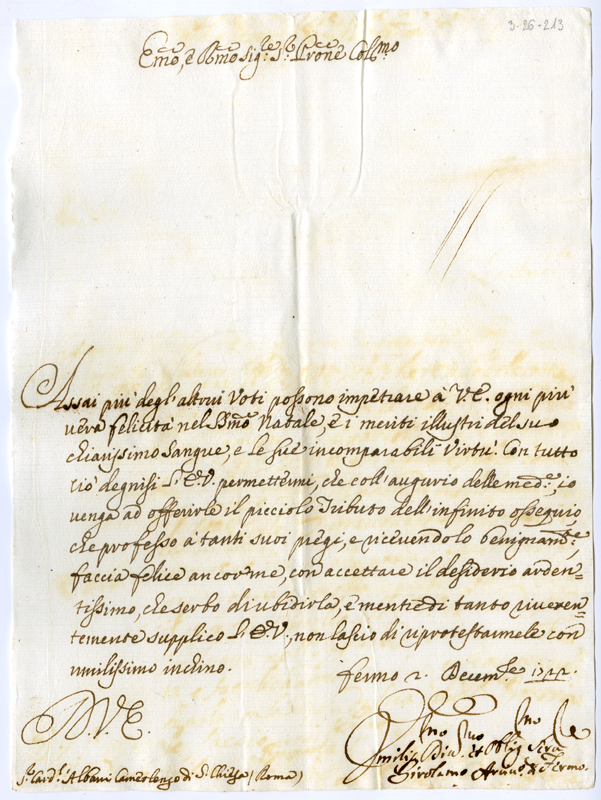 3-26-213
Emo, e Rmo Sig.re S.r Prone Colmo
Assai più degl'altrui Voti possono impetrare à V.E. ogni più
vera felicità nel Ssmo Natale, e i meriti illustri del suo
chiarissimo sangue, e le sue incomparabili Virtù. Con tutto
ciò degnisi l'E.V. permettermi, che coll'augurio delle med.e, io
venga ad offerirle il picciolo Tributo dell'infinito ossequio,
che professo à tanti suoi pregi, e ricevendolo benignam.te,
faccia felice ancor me, con accettare il desiderio arden=
tissimo, che serbo di ubidirla, e mentre di tanto riveren=
temente supplico l'E.V., non lascio di riprotestarmele con
umilissimo inchino.
Fermo 2. Decem.re 1722.
D.V.E.
S.r Card.l Albani Camerlengo di S. Chiesa (Roma)
Umiliss Div.o et Obblig Serv.
Girolamo Arciv.o di Fermo.